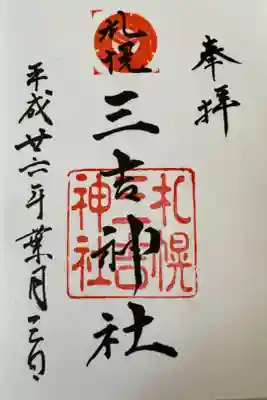 奉拝
札幌
三吉神社
札幌三吉神社
平成廿六年葉月三日